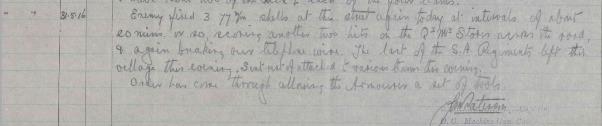 31-5-16 Enemy fired 3 77 m/m shells at the street again today at intervals of about
20 mins. or so, scoring another two hits on the Qr Mr Stores across the road,
& again breaking our telephone wire. The last of the S.A. Regiments left this
village this evening. Sent out attached to various teams this evening.
Order has come through allowing the Armourer a set of tools.
O.C. Machine Gun Co